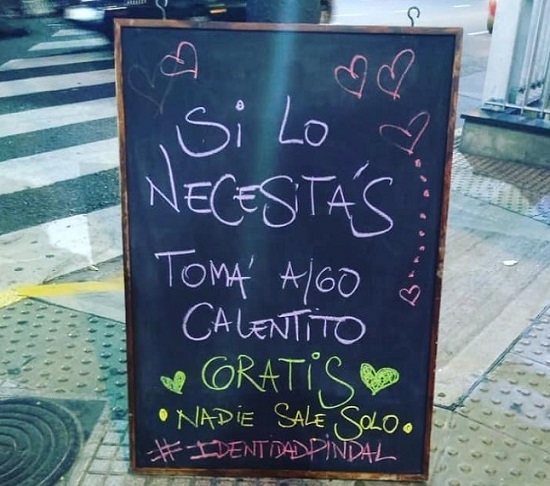 Si Lo
NECESITÁS
TOMÁ AlGO
CALENTITO
GRATIS
• NADIE SALE SOLO •
#IDENTIDADPINDAL